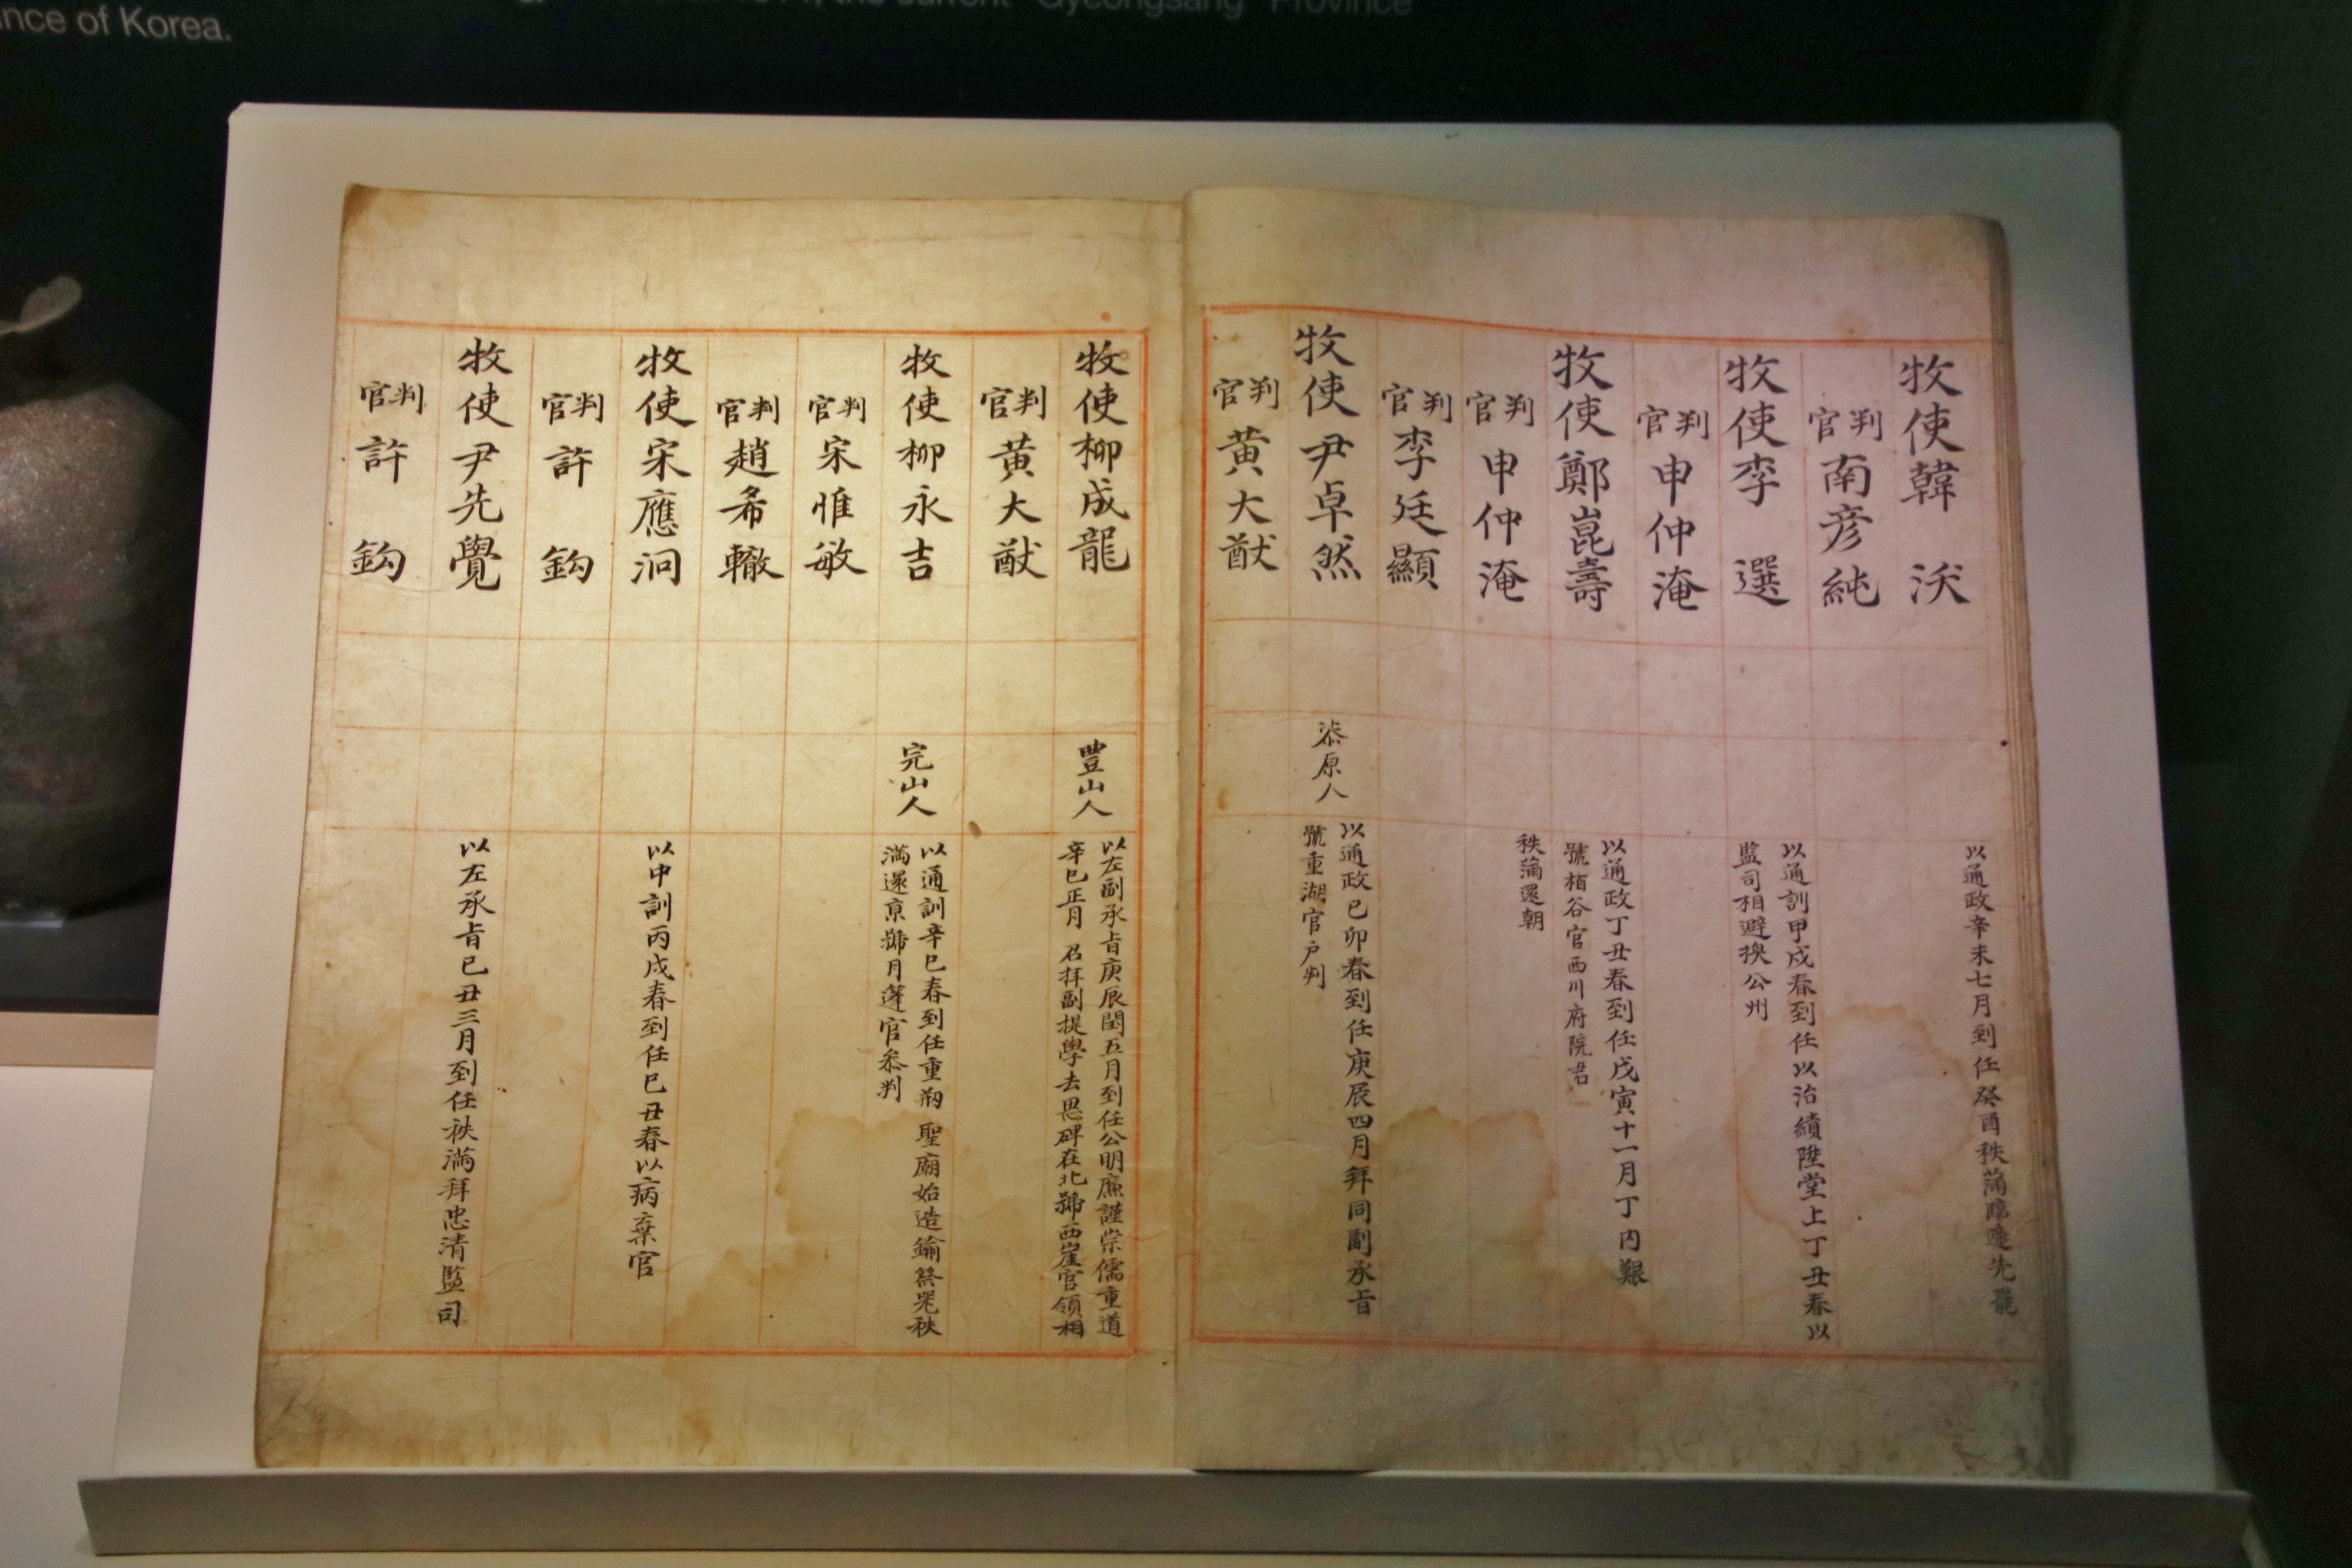 nce of Korea.
the current "Gyeongsang" Province
牧使韓 沃
以通政辛未七月到任癸酉秩滿
判官南彦純
牧使李 選
以通訓甲戌春到任以治績陞堂上丁丑春以
監司相避換公州
判官申仲淹
牧使鄭崑壽
以通政丁丑春到任戊寅十一月丁内艱
號栢谷官西川府院君
判官申仲淹
秩滿還朝
判官李廷顯
牧使尹卓然
漆原人
以通政己卯春到任庚辰四月拜同副承旨
號重湖官户判
判官黄大猷
牧使柳成龍
豐山人
以左副承旨庚辰閏五月到任公明廉謹崇儒重道
辛巳正月 召拜副提學去思碑在北號西崖官領相
判官黄大猷
牧使柳永吉
完山人
以通訓辛巳春到任重剏 聖廟始造鍮祭器秩
滿還京號月篷官叅判
判官宋惟敏
判官趙希轍
牧使宋應泂
以中訓丙戌春到任己丑春以病棄官
判官許 鈞
牧使尹先覺
以左承旨己丑三月到任秩滿拜忠清監司
判官許 鈞